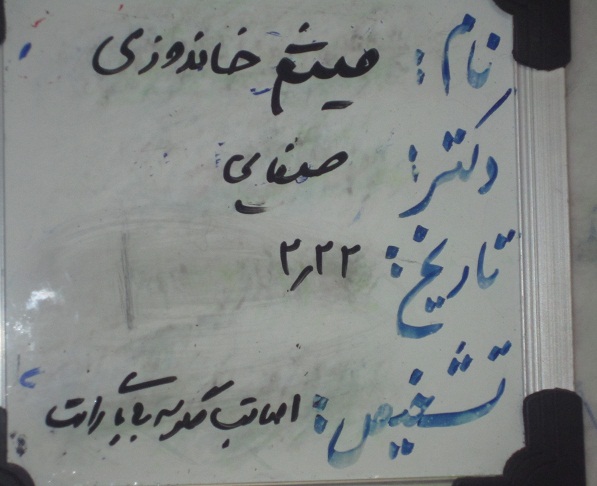 نام: میثم خاندوزی
دکتر: صفایی
تاریخ: ۲٫۲۲
تشخیص: اصابت گلوله به پای راست